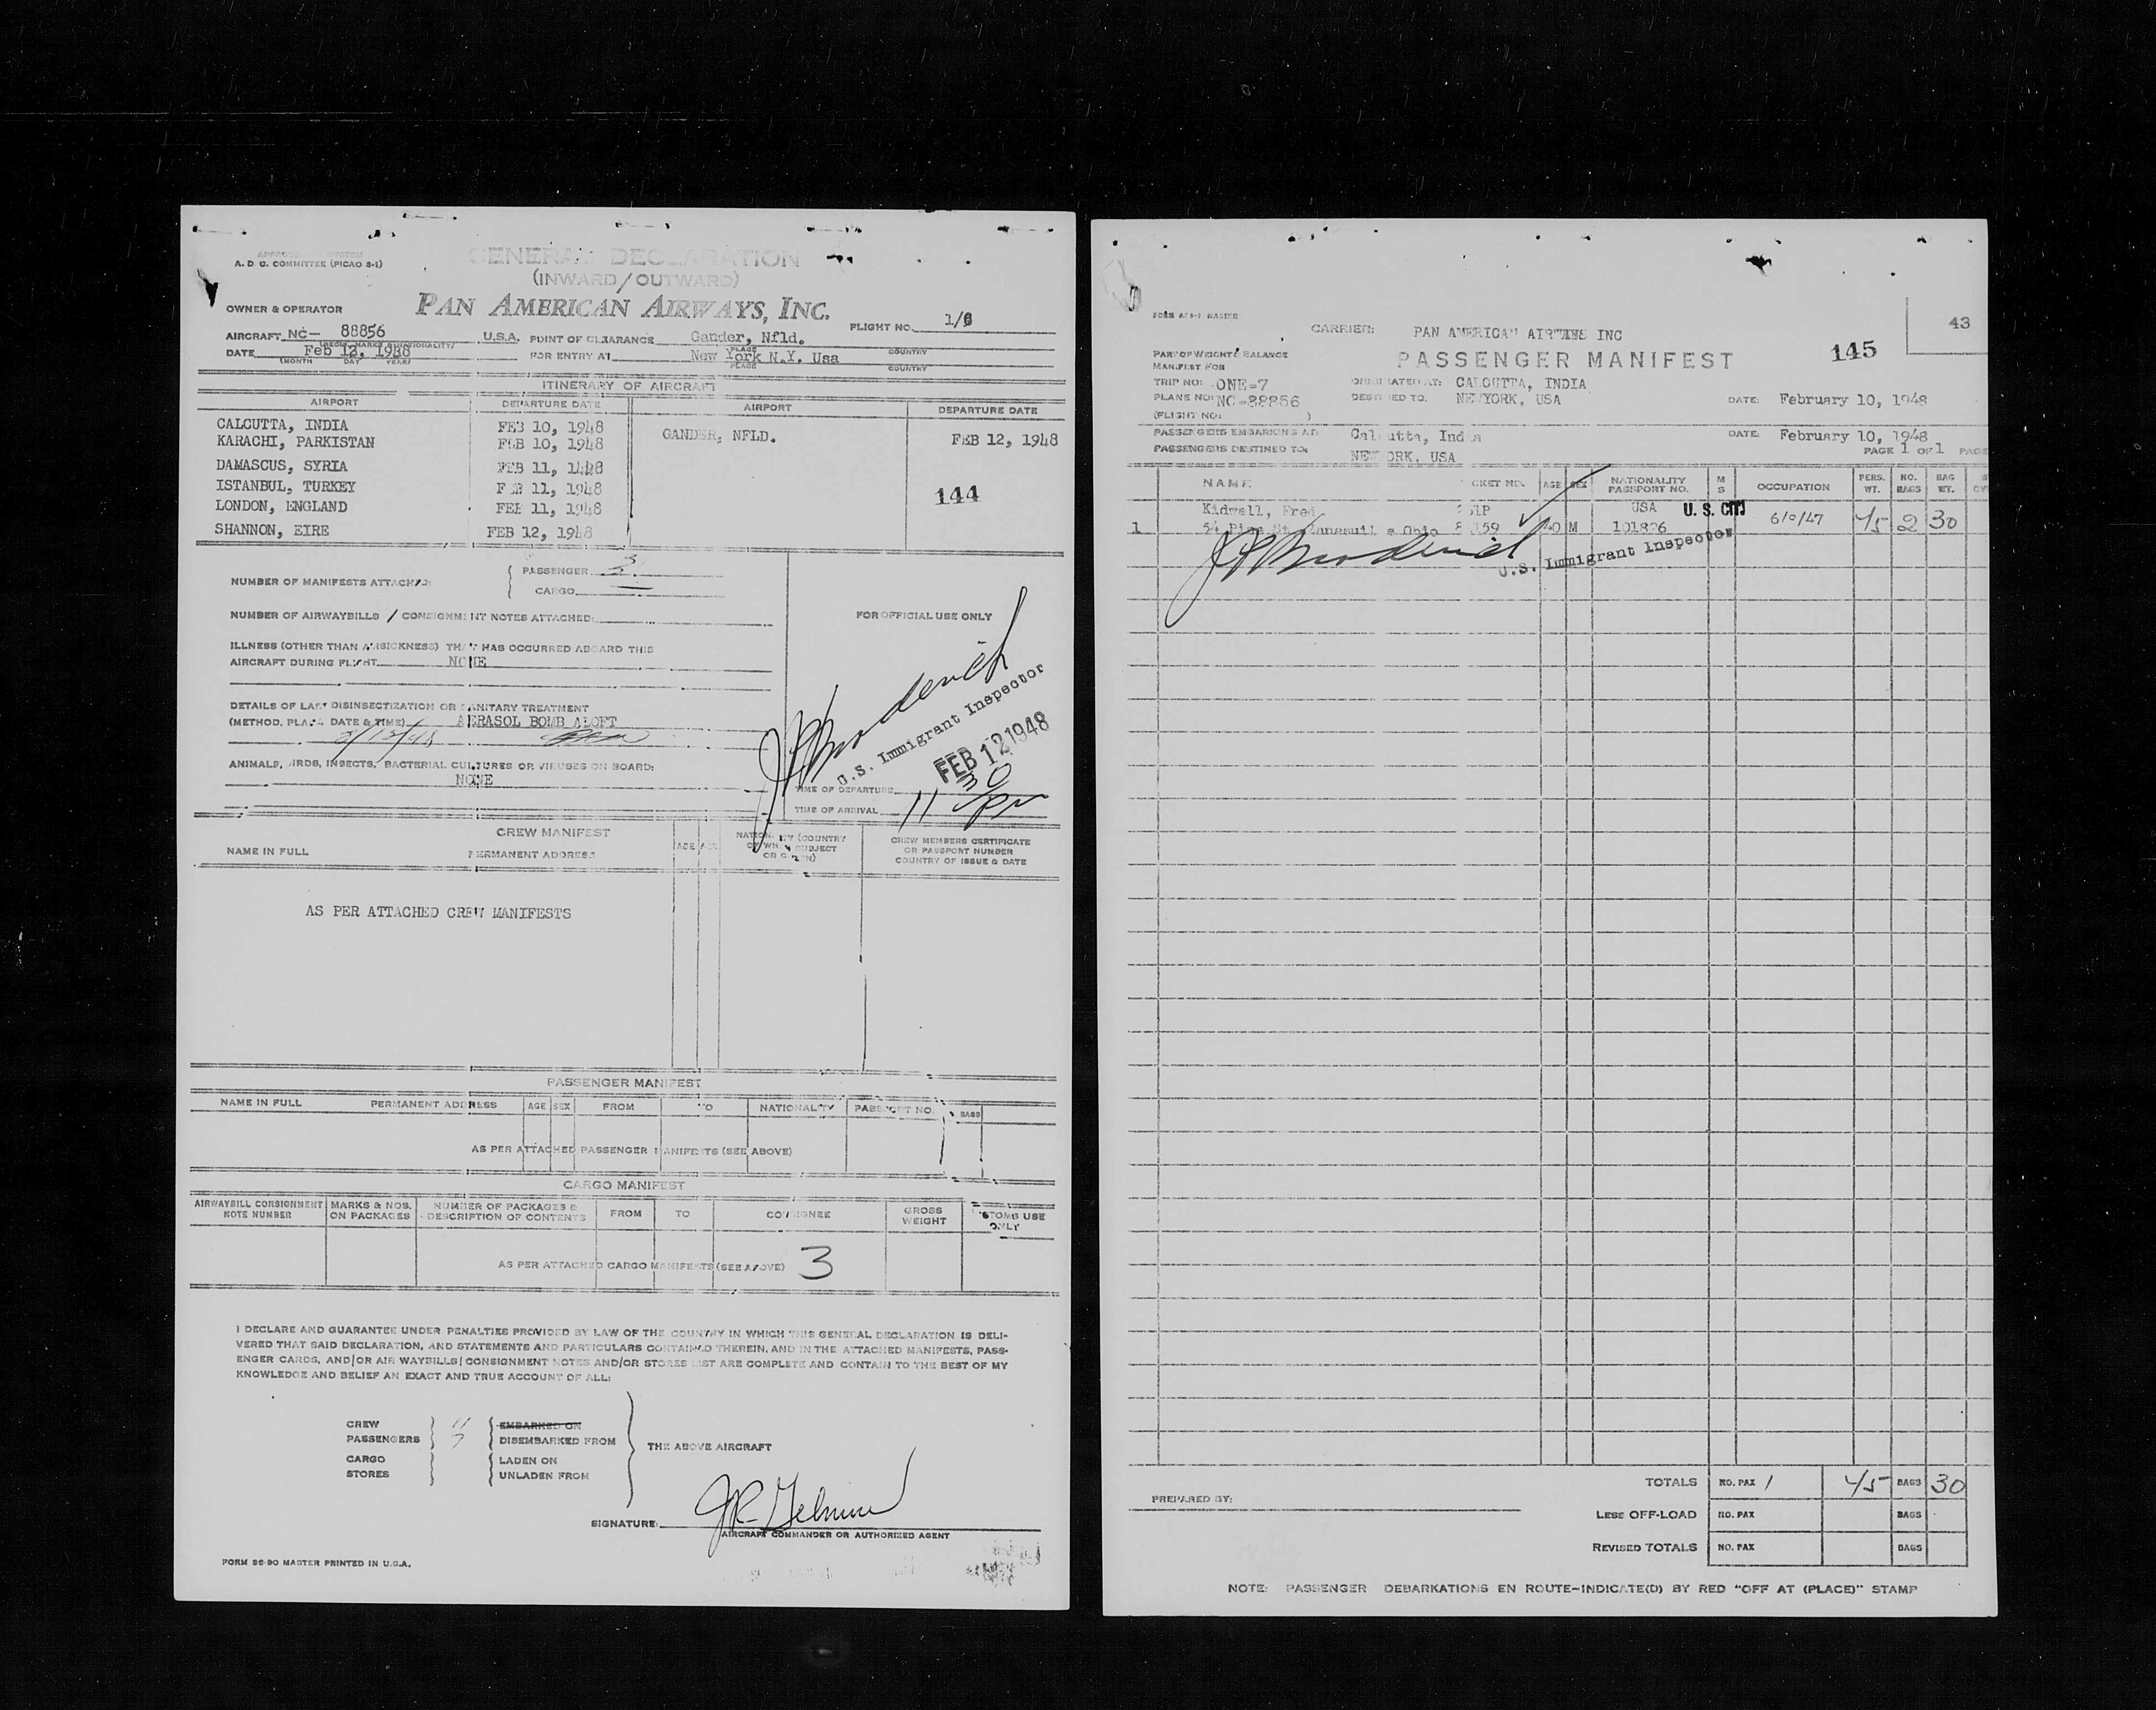 A. D. C. COMMITTEE (PICAO 8-1)
GENERAL DECLARATION
(INWARD/OUTWARD)
PAN AMERICAN AIRWAYS, INC.
OWNER & OPERATOR
FLIGHT NO.
AIRCRAFT NC- 88856 U.S.A. POINT OF CLEARANCE Gander, Nfld.
DATE Feb 12, 1948 FOR ENTRY AT New York N.Y. Usa
(MONTH DAY YEAR) PLACE COUNTRY
ITINERARY OF AIRCRAFT
AIRPORT DEPARTURE DATE AIRPORT DEPARTURE DATE
CALCUTTA, INDIA FEB 10, 1948 GANDER, NFLD. FEB 12, 1948
KARACHI, PARKISTAN FEB 10, 1948
DAMASCUS, SYRIA FEB 11, 1948
ISTANBUL, TURKEY FEB 11, 1948
LONDON, ENGLAND FEB 11, 1948
SHANNON, EIRE FEB 12, 1948
144
NUMBER OF MANIFESTS ATTACHED:
PASSENGER
CARGO
NUMBER OF AIRWAYBILLS / CONSIGNMENT NOTES ATTACHED:
FOR OFFICIAL USE ONLY
ILLNESS (OTHER THAN AIRSICKNESS) THAT HAS OCCURRED ABOARD THIS
AIRCRAFT DURING FLIGHT NONE
DETAILS OF LAST DISINSECTIZATION OR SANITARY TREATMENT
(METHOD, PLACE DATE & TIME) AERASOL BOMB ALOFT
2/12/48
ANIMALS, BIRDS, INSECTS, BACTERIAL CULTURES OR VIRUSES ON BOARD:
NONE
J Broderick
U.S. Immigrant Inspector
FEB 12 1948
TIME OF DEPARTURE
TIME OF ARRIVAL 11 30 pm
CREW MANIFEST
NAME IN FULL PERMANENT ADDRESS AGE SEX NATIONALITY (COUNTRY OF WHICH SUBJECT OR CITIZEN) CREW MEMBERS CERTIFICATE OR PASSPORT NUMBER COUNTRY OF ISSUE & DATE
AS PER ATTACHED CREW MANIFESTS
PASSENGER MANIFEST
NAME IN FULL PERMANENT ADDRESS AGE SEX FROM TO NATIONALITY PASSPORT NO. BAGS
AS PER ATTACHED PASSENGER MANIFESTS (SEE ABOVE)
CARGO MANIFEST
AIRWAYBILL CONSIGNMENT NOTE NUMBER MARKS & NOS. ON PACKAGES NUMBER OF PACKAGES & DESCRIPTION OF CONTENTS FROM TO CONSIGNEE GROSS WEIGHT CUSTOMS USE ONLY
AS PER ATTACHED CARGO MANIFESTS (SEE ABOVE) 3
I DECLARE AND GUARANTEE UNDER PENALTIES PROVIDED BY LAW OF THE COUNTRY IN WHICH THIS GENERAL DECLARATION IS DELI-
VERED THAT SAID DECLARATION, AND STATEMENTS AND PARTICULARS CONTAINED THEREIN, AND IN THE ATTACHED MANIFESTS, PASS-
ENGER CARDS, AND/OR AIR WAYBILLS/CONSIGNMENT NOTES AND/OR STORES LIST ARE COMPLETE AND CONTAIN TO THE BEST OF MY
KNOWLEDGE AND BELIEF AN EXACT AND TRUE ACCOUNT OF ALL:
CREW 11 EMBARKED ON
PASSENGERS 7 DISEMBARKED FROM
THE ABOVE AIRCRAFT
CARGO LADEN ON
STORES UNLADEN FROM
SIGNATURE:
AIRCRAFT COMMANDER OR AUTHORIZED AGENT
FORM 36-90 MASTER PRINTED IN U.S.A.
43
CARRIER: PAN AMERICAN AIRWAYS INC
145
PART OF WEIGHT & BALANCE
MANIFEST FOR
PASSENGER MANIFEST
TRIP NO: ONE-7 ORIGINATED AT: CALCUTTA, INDIA
PLANE NO: NC-88856 DESTINED TO: NEWYORK, USA DATE: February 10, 1948
(FLIGHT NO: )
PASSENGERS EMBARKING AT: Calcutta, India DATE: February 10, 1948
PASSENGERS DESTINED TO: NEWYORK, USA PAGE 1 OF 1 PAGE
NAME TICKET NO. AGE SEX NATIONALITY PASSPORT NO. M S OCCUPATION PERS. WT. NO. BAGS BAG WT.
Kidwell, Fred USA U. S. CIT
1 54 Pine St. Ohio M 101826 45 2 30
J Broderick
U.S. Immigrant Inspector
TOTALS NO. PAX 1 45 BAGS 30
PREPARED BY:
LESS OFF-LOAD NO. PAX BAGS
REVISED TOTALS NO. PAX BAGS
NOTE: PASSENGER DEBARKATIONS EN ROUTE-INDICATE(D) BY RED "OFF AT (PLACE)" STAMP